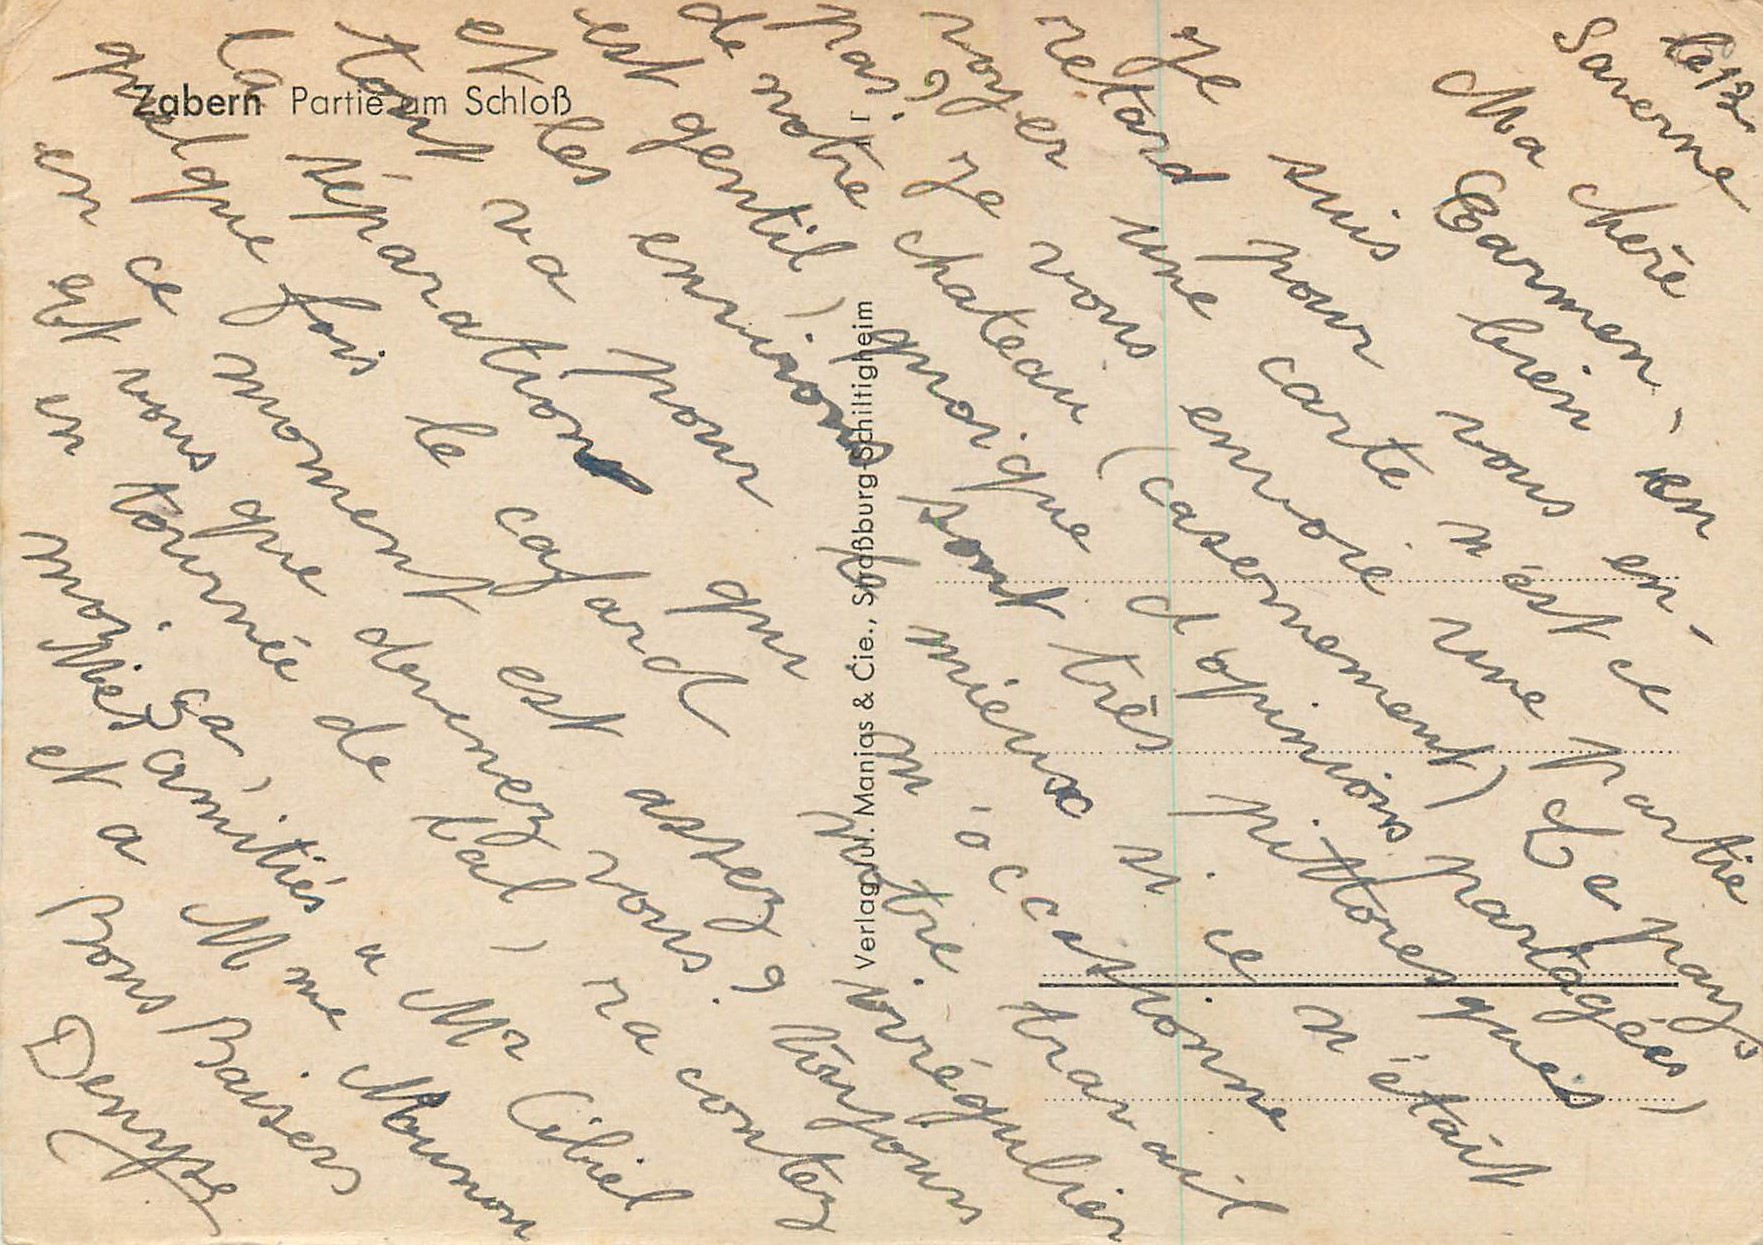 Zabern Partie am Schloß
Verlag Jul. Manias & Cie., Straßburg-Schiltigheim
Saverne le 12
Ma chère Carmen,
Je suis bien en
retard pour vous en-
voyer une carte n'est ce
pas? Je vous envoie une partie
de notre chateau (casernement) Le pays
est gentil, quoique d'opinions partagées
et les environs sont très pittoresques,
tout va pour le mieux si ce n'était
la séparation qui m'occasionne
quelque fois le cafard notre travail
en ce moment est assez irrégulier
Et vous que devenez vous? toujours
en tournée de bal, racontez
moi ça,
Mes amitiés a Mr Cibiel
et a Mme Mounon
Bons Baisers
Denyse